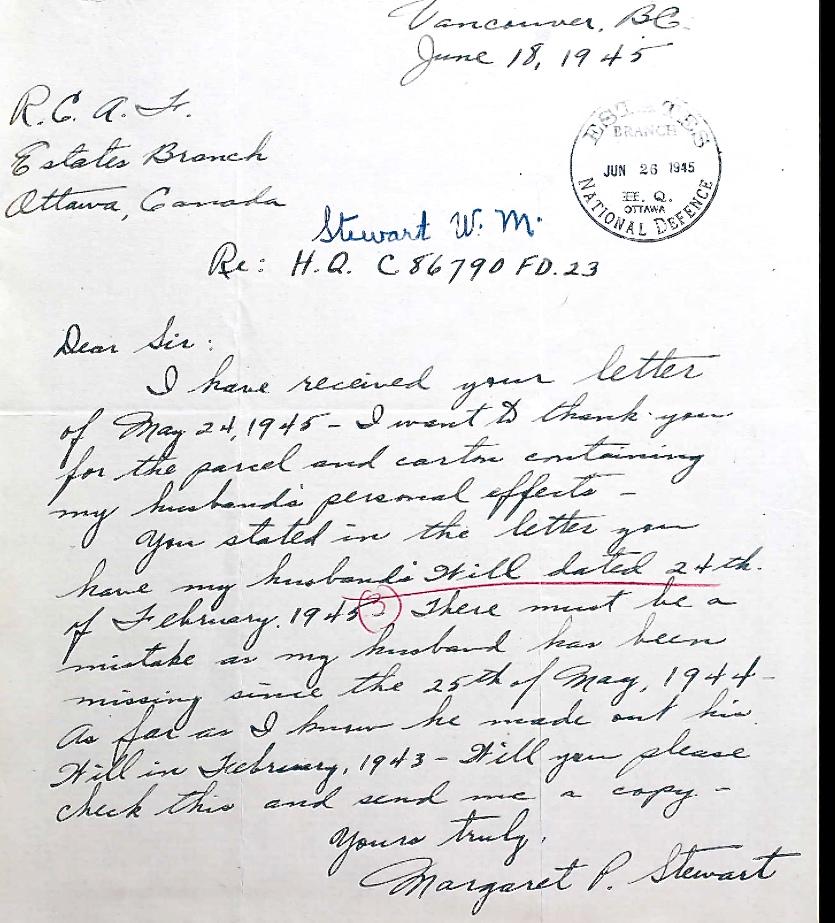 Vancouver, B.C.
June 18, 1945
R.C.A.F.
Estates Branch
Ottawa, Canada
ESTATES
BRANCH
JUN 26 1945
H. Q.
OTTAWA
NATIONAL DEFENCE
Stewart W. M.
Re: H.Q. C 86790 FD. 23
Dear Sir:
I have received your letter
of May 24, 1945 - I want to thank you
for the parcel and carton containing
my husband's personal effects -
You stated in the letter you
have my husband's Will dated 24th.
of February, 1945 (3) There must be a
mistake as my husband has been
missing since the 25th of May, 1944 -
As far as I know he made out his
Will in February, 1943 - Will you please
check this and send me a copy -
Yours truly,
Margaret P. Stewart